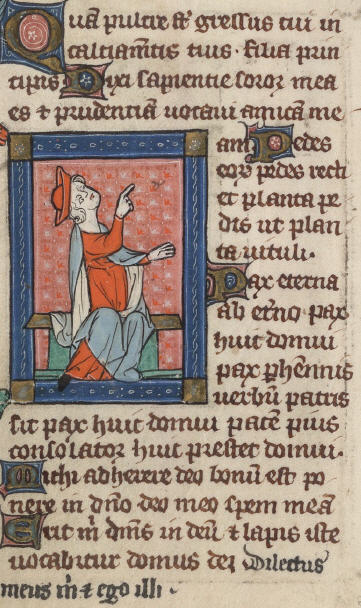 Quā pulcre st̄ gressus tui in
calciam̄tis tuis. Filia prin
cipis Dixi sapientie soror mea
es ⁊ prudentiā uocaui amicā me
am Pedes
eoꝝ pedes recti
et planta pe
dis ut plan
ta uituli.
Pax eterna
ab et̄no pax
huic domui
pax ꝑhennis
uerbū patris
sit pax huic domui pacē pius
consolator huic prestet domui.
Michi adherere deo bonū est po
nere in dn̄o deo meo spem meā
Erit m̄ dn̄s in deū ⁊ lapis iste
uocabitur domus dei Dilectus
meus m̄ ⁊ ego illi.